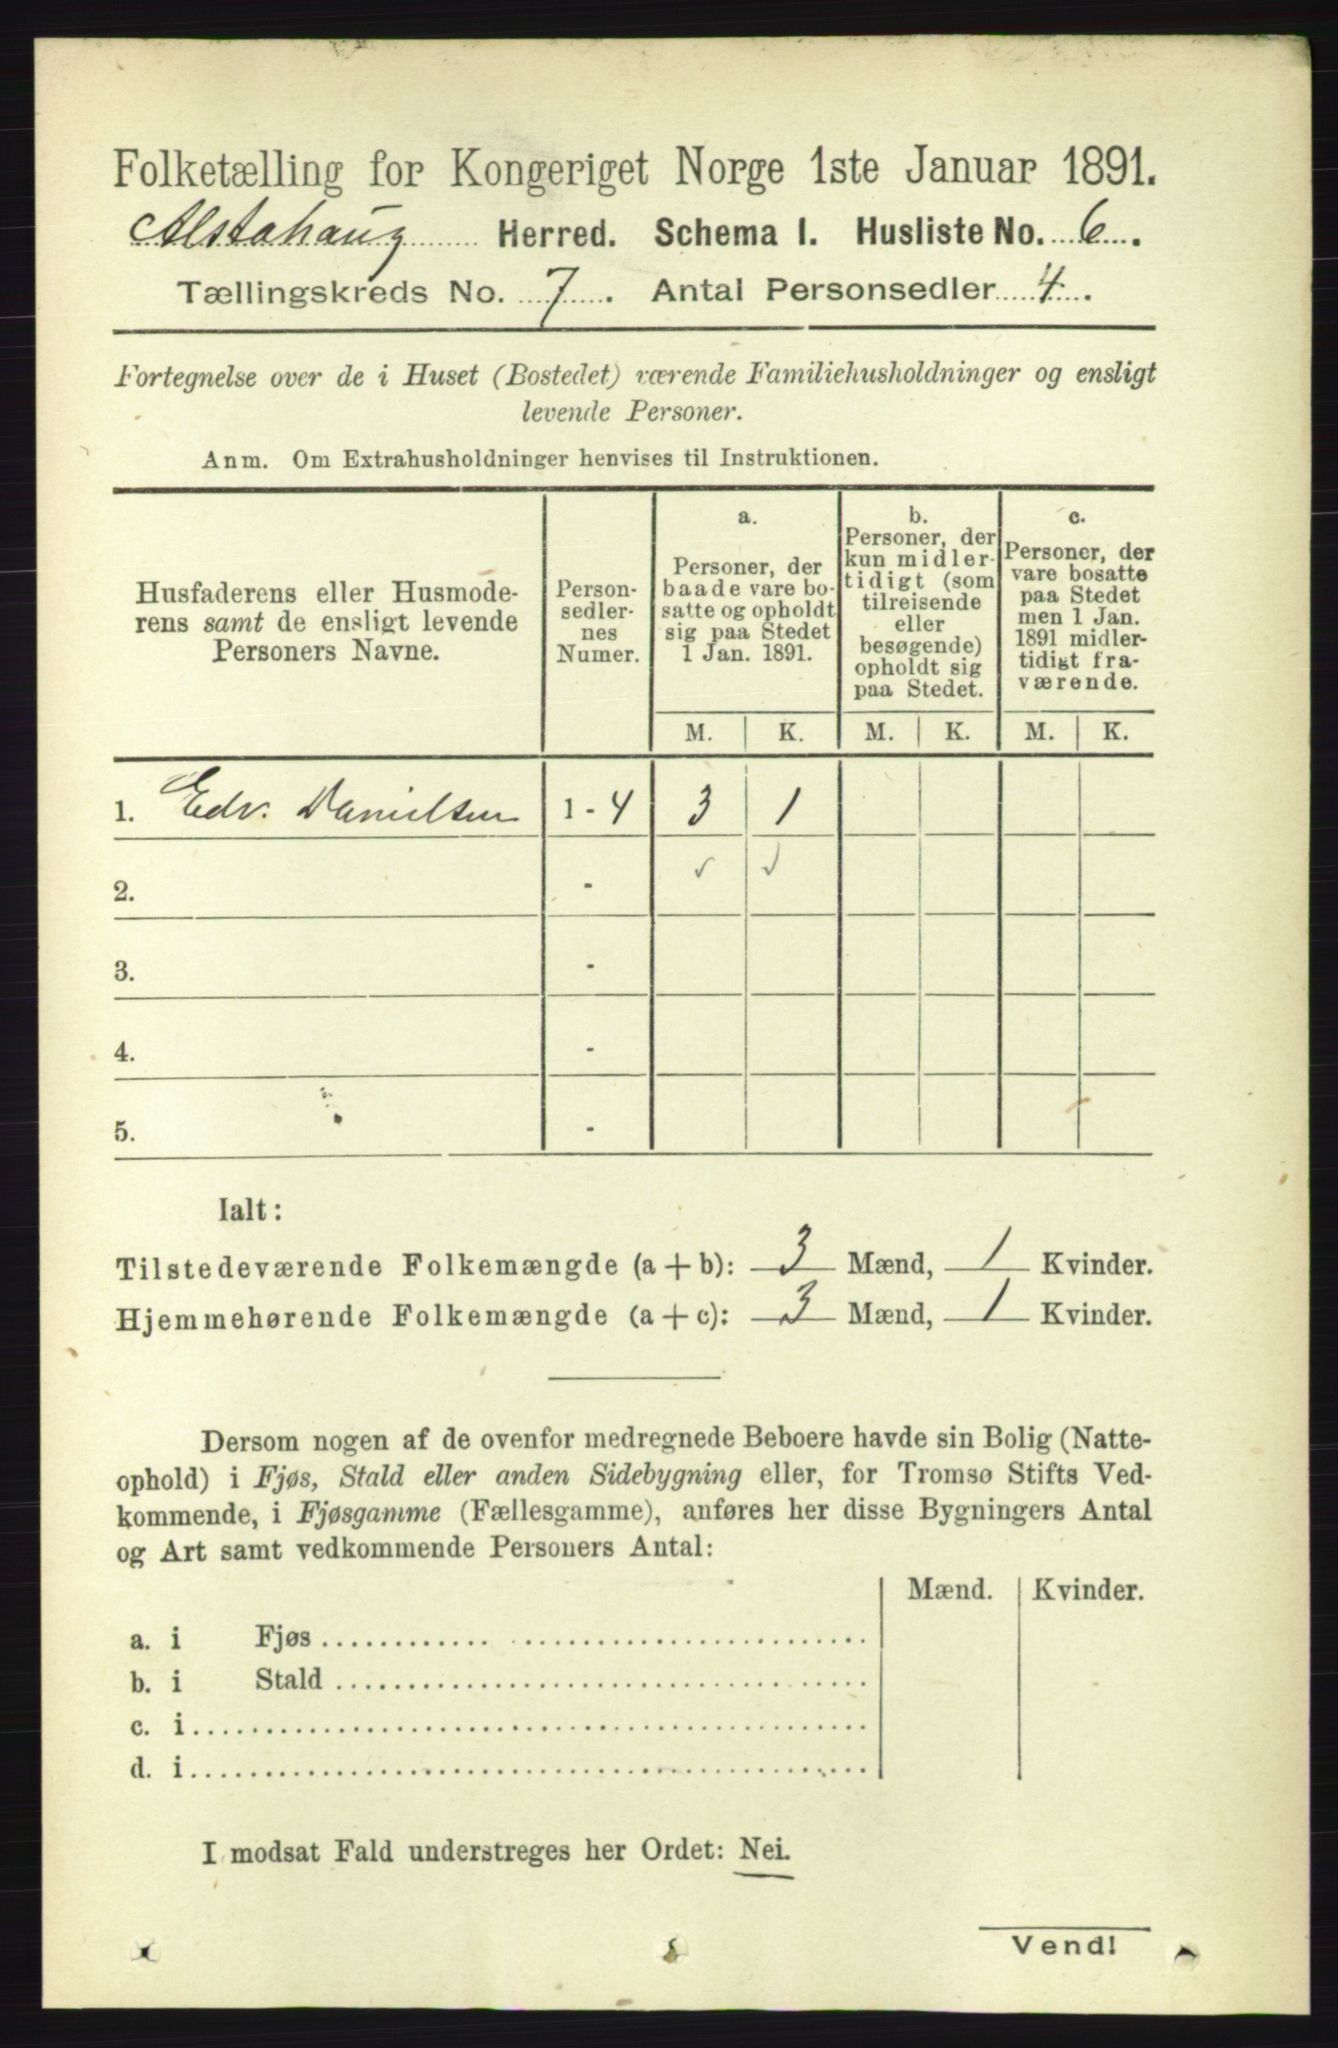 Folketælling for Kongeriget Norge 1ste Januar 1891.
Alstahaug Herred. Schema I. Husliste No. 6.
Tællingskreds No. 7. Antal Personsedler 4.
Fortegnelse over de i Huset (Bostedet) værende Familiehusholdninger og ensligt
levende Personer.
Anm. Om Extrahusholdninger henvises til Instruktionen.
Husfaderens eller Husmode-
rens samt de ensligt levende
Personers Navne.
Person-
sedler-
nes
Numer.
a.
Personer, der
baade vare bo-
satte og opholdt
sig paa Stedet
1 Jan. 1891.
b.
Personer, der
kun midler-
tidigt (som
tilreisende
eller
besøgende)
opholdt sig
paa Stedet.
c.
Personer, der
vare bosatte
paa Stedet
men 1 Jan.
1891 midler-
tidigt fra-
værende.
M. K. M. K. M. K.
1. Edv. Danielsen 1 - 4 3 1
2. - ✓ ✓
3. -
4. -
5. -
Ialt:
Tilstedeværende Folkemængde (a + b): 3 Mænd, 1 Kvinder.
Hjemmehørende Folkemængde (a + c): 3 Mænd, 1 Kvinder.
Dersom nogen af de ovenfor medregnede Beboere havde sin Bolig (Natte-
ophold) i Fjøs, Stald eller anden Sidebygning eller, for Tromsø Stifts Ved-
kommende, i Fjøsgamme (Fællesgamme), anføres her disse Bygningers Antal
og Art samt vedkommende Personers Antal:
Mænd. Kvinder.
a. i Fjøs
b. i Stald
c. i
d. i
I modsat Fald understreges her Ordet: Nei.
Vend!